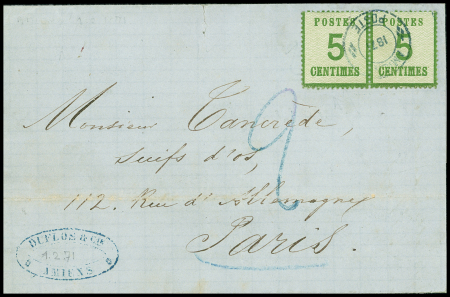 POSTES POSTES
5 5
CENTIMES CENTIMES
Monsieur Tancrède,
suifs d'os,
112. Rue d'Allemagne,
Paris.
2
DUFLOS & CIE
AMIENS